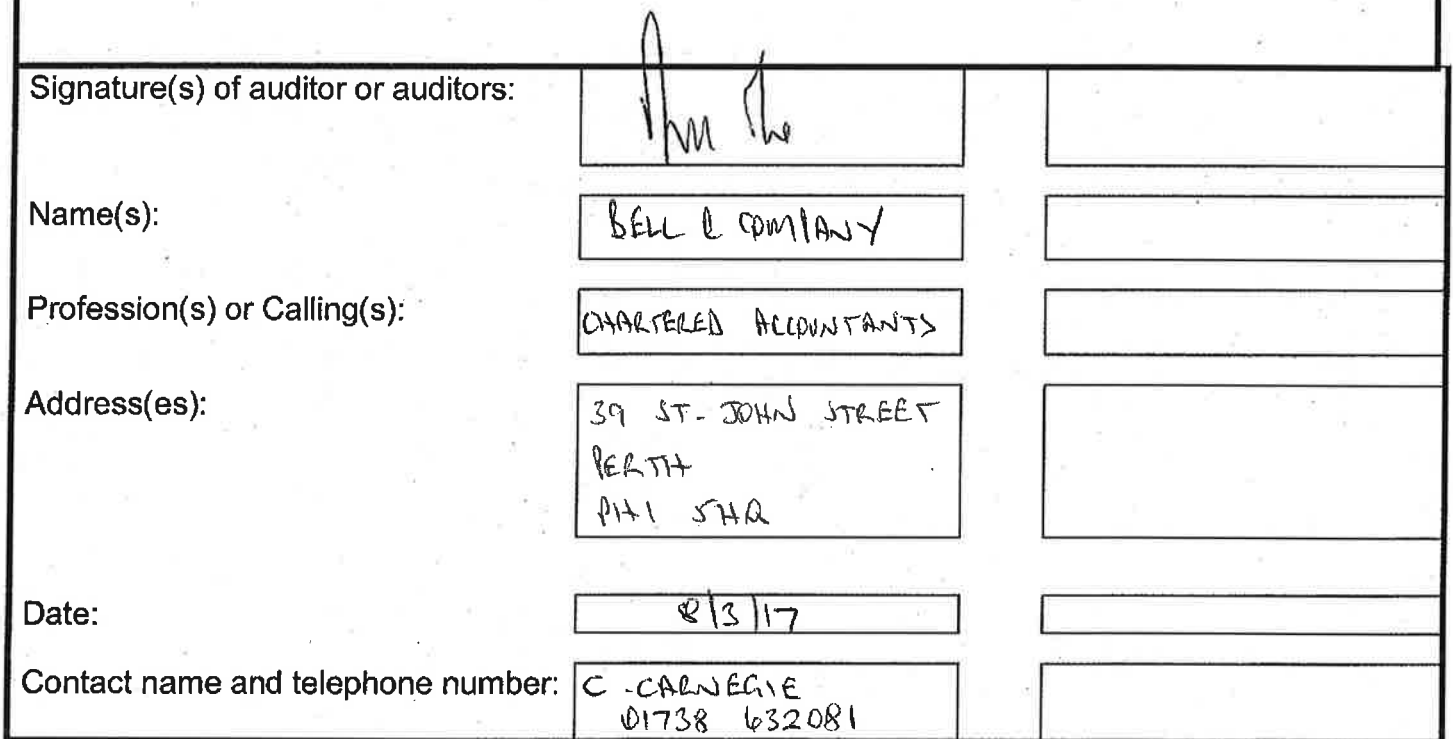 Signature(s) of auditor or auditors:
Name(s):
BELL & COMPANY
Profession(s) or Calling(s):
CHARTERED ACCOUNTANTS
Address(es):
39 ST. JOHN STREET
PERTH
PH1 5HQ
Date:
8/3/17
Contact name and telephone number:
C. CARNEGIE
01738 632081